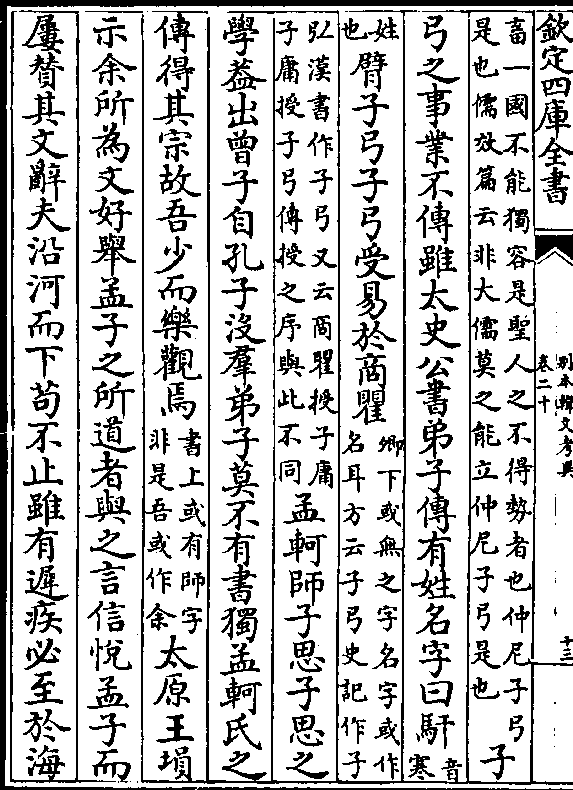 欽定四庫全書
別本韓文考異
卷二十
十三
畜一國不能獨容是聖人之不得勢者也仲尼子弓
是也儒效篇云非大儒莫之能立仲尼子弓是也
子
弓之事業不傳雖太史公書弟子傳有姓名字曰馯
音
寒
姓
也
臂子弓子弓受易於商瞿
卿下或無之字名字或作
名耳方云子弓史記作子
弘漢書作子弓又云商瞿授子庸
子庸授子弓傳授之序與此不同
孟軻師子思子思之
學葢出曾子自孔子沒羣弟子莫不有書獨孟軻氏之
傳得其宗故吾少而樂觀焉
書上或有師字
非是吾或作余
太原王塤
示余所為文好舉孟子之所道者與之言信悅孟子而
屢賛其文辭夫沿河而下苟不止雖有遲疾必至於海